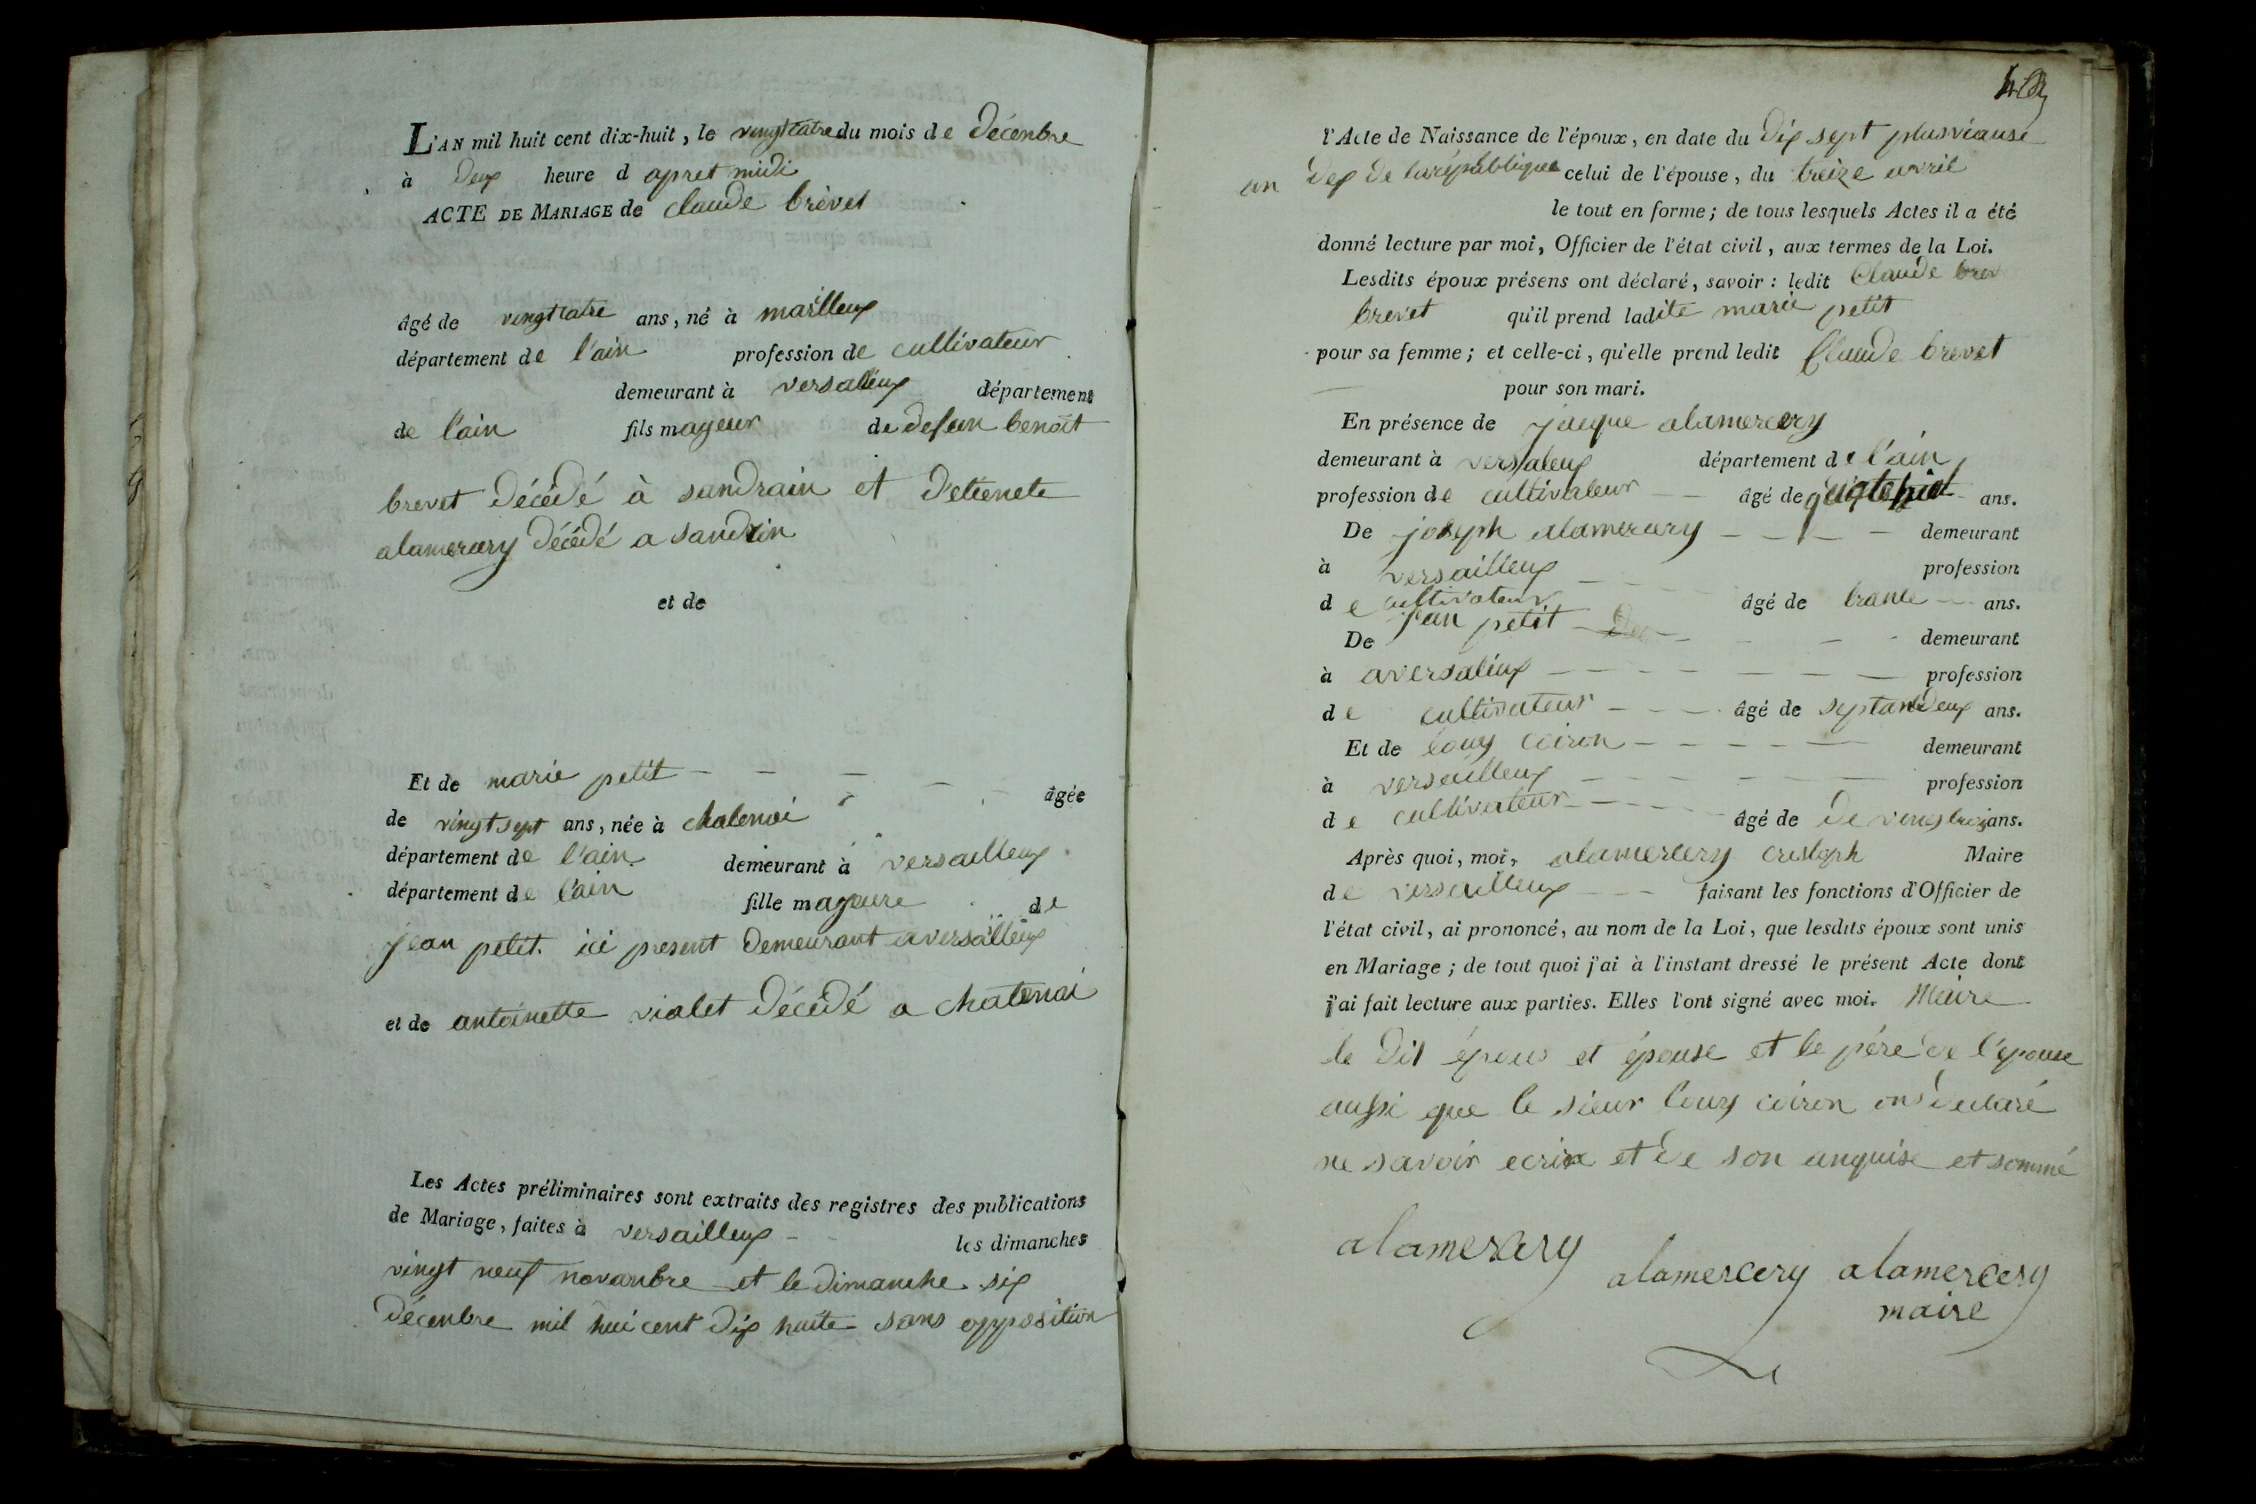 L'AN mil huit cent dix-huit, le vingtcatre du mois de décenbre
à deux heure d apret midi
ACTE DE MARIAGE de claude brèvet
âgé de vingtcatre ans, né à marlleux
département de l'ain profession de cultivateur
demeurant à versalieux département
de l'ain fils mageur de defun benoit
brevet décédé à sandrain et d'etienete
alamercery décédé a sandrin
et de
Et de marie petit
âgée
de vingt sept ans, née à chatenai
département de l'ain demeurant à versailleux
département de l'ain fille mageure de
jean petit ici present demeurant a versailleux
et de antoinette violet décédé a chatenai
Les Actes préliminaires sont extraits des registres des publications
de Mariage, faites à versailleux les dimanches
vingt neuf novanbre et le dimanche six
décenbre mil hui cent dix huite sans opposition
l'Acte de Naissance de l'époux, en date du dix sept plusviause
an dex de la répubblique celui de l'épouse, du treize avril
le tout en forme; de tous lesquels Actes il a été
donné lecture par moi, Officier de l'état civil, aux termes de la Loi.
Lesdits époux présens ont déclaré, savoir: ledit Claude brev
brevet qu'il prend ladite marie petit
pour sa femme; et celle-ci, qu'elle prend ledit Claude brevet
pour son mari.
En présence de jaque alamercery
demeurant à versaleux département de l'ain
profession de cultivateur âgé de ans.
De joseph alamercery demeurant
à versailleux profession
de cultivateur âgé de trante ans.
De jean petit demeurant
à a versalieux profession
de cultivateur âgé de septandeux ans.
Et de louy coiron demeurant
à versailleux profession
de cultivateur âgé de de vingtrois ans.
Après quoi, moi, alamercery cristoph Maire
de versailleux faisant les fonctions d'Officier de
l'état civil, ai prononcé, au nom de la Loi, que lesdits époux sont unis
en Mariage; de tout quoi j'ai à l'instant dressé le présent Acte dont
j'ai fait lecture aux parties. Elles l'ont signé avec moi. Maire
le dit épous et épouse et le pére de l'épouse
aussi que le sieur louy coiron on déclaré
ne savoir ecrire et de son anquise et sommé
alamercery
alamercery alamercery
maire